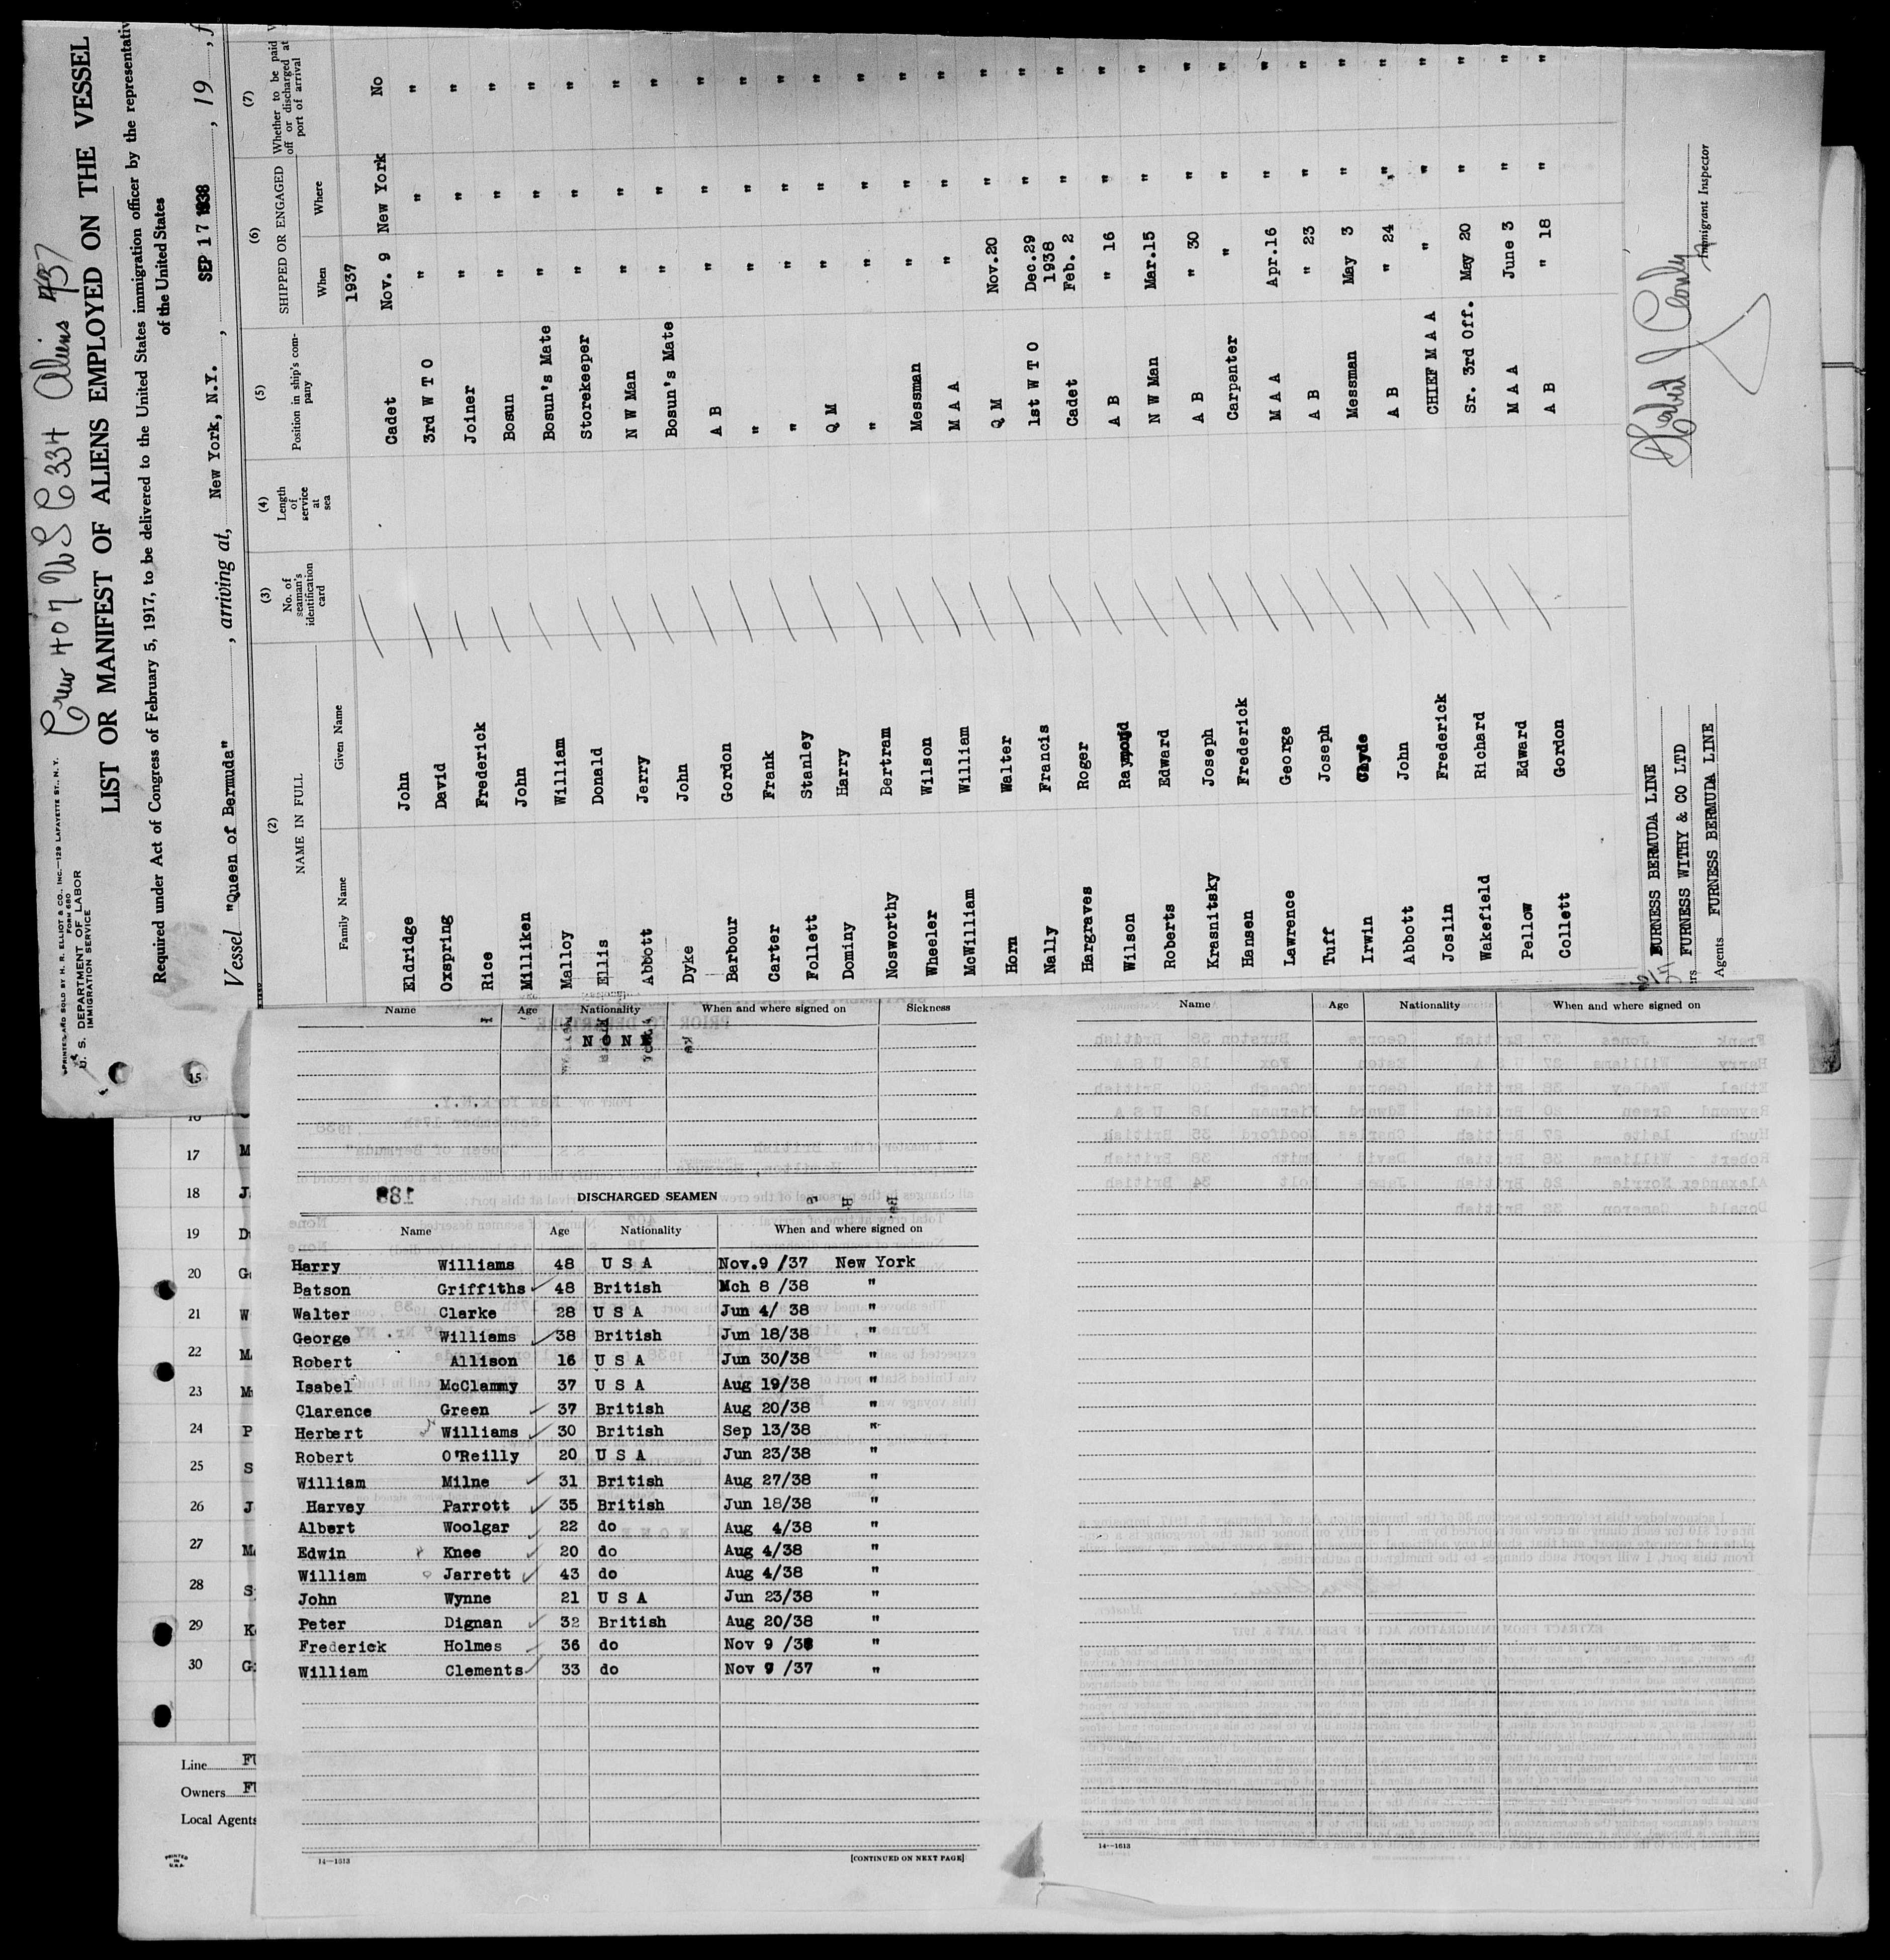 PRINTED AND SOLD BY H. R. ELLIOT & CO., INC.—129 LAFAYETTE ST., N.Y.
FORM 680
U. S. DEPARTMENT OF LABOR
IMMIGRATION SERVICE
Crew 407 U S C 334 Aliens
LIST OR MANIFEST OF ALIENS EMPLOYED ON THE VESSEL
Required under Act of Congress of February 5, 1917, to be delivered to the United States immigration officer by the representativ
of the United States
Vessel "Queen of Bermuda" , arriving at, New York, N.Y. , SEP 17 1938 , 19 , f
(2) (3) (4) (5) (6) (7)
NAME IN FULL No. of seaman's identification card Length of service at sea Position in ship's company SHIPPED OR ENGAGED Whether to be paid off or discharged at port of arrival
Family Name Given Name When Where
1937
Eldridge John Cadet Nov. 9 New York No
Oxspring David 3rd W T O " " "
Rice Frederick Joiner " " "
Milliken John Bosun " " "
Malloy William Bosun's Mate " " "
Ellis Donald Storekeeper " " "
Abbott Jerry N W Man " " "
Dyke John Bosun's Mate " " "
Barbour Gordon A B " " "
Carter Frank " " " "
Follett Stanley " " " "
Dominy Harry Q M " " "
Nosworthy Bertram " " " "
Wheeler Wilson Messman " " "
McWilliam William M A A " " "
Horn Walter Q M Nov.20 " "
Nally Francis 1st W T O Dec.29 " "
1938
Hargraves Roger Cadet Feb. 2 " "
Wilson Raymond A B " 16 " "
Roberts Edward N W Man Mar.15 " "
Krasnitsky Joseph A B " 30 " "
Hansen Frederick Carpenter " " "
Lawrence George M A A Apr.16 " "
Tuff Joseph A B " 23 " "
Irwin Clyde Messman May 3 " "
Abbott John A B " 24 " "
Joslin Frederick CHIEF M A A " " "
Wakefield Richard Sr. 3rd Off. May 20 " "
Pellow Edward M A A June 3 " "
Collett Gordon A B " 18 " "
FURNESS BERMUDA LINE
FURNESS WITHY & CO LTD
Agents FURNESS BERMUDA LINE
Immigrant Inspector
Name Age Nationality When and where signed on Sickness
N O N E
DISCHARGED SEAMEN
Name Age Nationality When and where signed on
Harry Williams 48 U S A Nov.9 /37 New York
Batson Griffiths 48 British Mch 8 /38 "
Walter Clarke 28 U S A Jun 4/ 38 "
George Williams 38 British Jun 18/38 "
Robert Allison 16 U S A Jun 30/38 "
Isabel McClammy 37 U S A Aug 19/38 "
Clarence Green 37 British Aug 20/38 "
Herbert Williams 30 British Sep 13/38 "
Robert O'Reilly 20 U S A Jun 23/38 "
William Milne 31 British Aug 27/38 "
Harvey Parrott 35 British Jun 18/38 "
Albert Woolgar 22 do Aug 4/38 "
Edwin Knee 20 do Aug 4/38 "
William Jarrett 43 do Aug 4/38 "
John Wynne 21 U S A Jun 23/38 "
Peter Dignan 32 British Aug 20/38 "
Frederick Holmes 36 do Nov 9 /38 "
William Clements 33 do Nov 9 /37 "
14—1613
[CONTINUED ON NEXT PAGE]
Name Age Nationality When and where signed on
14—1613
15
16
17 M
18 J
19 D
20 G
21 W
22 M
23 M
24 P
25 S
26 J
27 M
28 S
29 K
30 G
Line FU
Owners FU
Local Agents
PRINTED IN U.S.A.